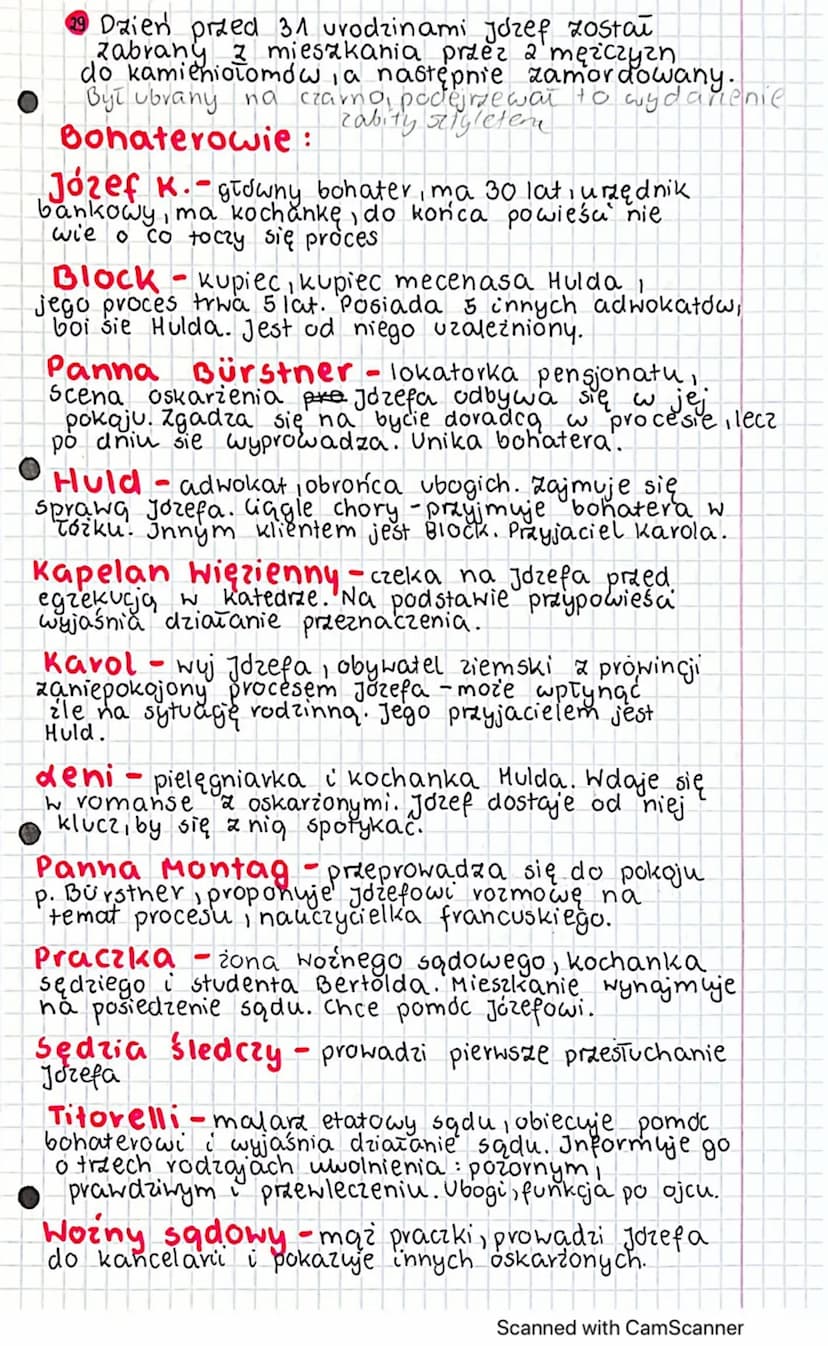 29 Dzień przed 31 urodzinami Józef został
zabrany z mieszkania przez 2 mężczyzn
do kamieniołomów, a następnie zamordowany.
Był ubrany na czarno, podejrzewał to wydarzenie
zabity sztyletem
Bohaterowie:
Józef K. - główny bohater, ma 30 lat, urzędnik
bankowy, ma kochankę, do końca powieści nie
wie o co toczy się proces
Block - kupiec, kupiec mecenasa Hulda,
jego proces trwa 5 lat. Posiada 5 innych adwokatów,
boi sie Hulda. Jest od niego uzależniony.
Panna Bürstner - lokatorka pensjonatu,
scena oskarżenia pro Józefa odbywa się w jej
pokoju. Zgadza się na bycie doradcą w procesie, lecz
po dniu sie wyprowadza. Unika bohatera.
Huld - adwokat, obrońca ubogich. Zajmuje się
sprawą Józefa. Ciągle chory - przyjmuje bohatera w
łóżku. Innym klientem jest Block. Przyjaciel Karola.
Kapelan Więzienny - czeka na Józefa przed
egzekucją w katedrze. Na podstawie przypowieści
wyjaśnia działanie przeznaczenia.
Karol - wuj Józefa, obywatel ziemski z prowincji
zaniepokojony procesem Józefa - może wpłynąć
źle na sytuację rodzinną. Jego przyjacielem jest
Huld.
Leni - pielęgniarka i kochanka Hulda. Wdaje się
w romanse z oskarżonymi. Józef dostaje od niej
klucz, by się z nią spotykać.
Panna Montag - przeprowadza się do pokoju
p. Bürstner, proponuje Józefowi rozmowę na
temat procesu, nauczycielka francuskiego.
Praczka - żona woźnego sądowego, kochanka
sędziego i studenta Bertolda. Mieszkanie wynajmuje
na posiedzenie sądu. Chce pomóc Józefowi.
Sędzia śledczy - prowadzi pierwsze przesłuchanie
Józefa
Titorelli - malarz etatowy sądu, obiecuje pomóc
bohaterowi i wyjaśnia działanie sądu. Informuje go
o trzech rodzajach uwolnienia: pozornym,
prawdziwym i przewleczeniu. Ubogi, funkcja po ojcu.
Woźny sądowy - mąż praczki, prowadzi Józefa
do kancelarii i pokazuje innych oskarżonych.
Scanned with CamScanner